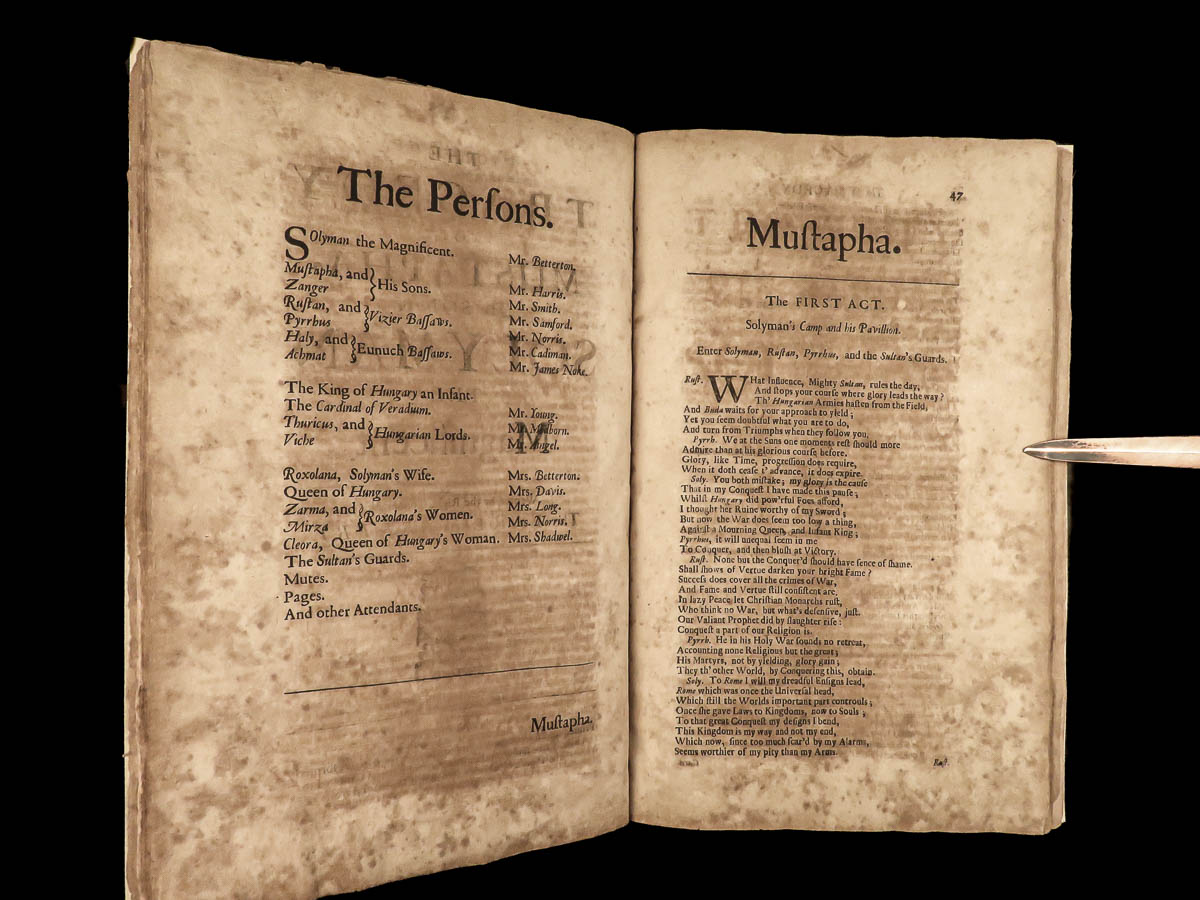 The Perſons.
SOlyman the Magnificent. Mr. Betterton.
Muſtapha, and } His Sons. Mr. Harris.
Zanger Mr. Smith.
Ruſtan, and } Vizier Baſſaws. Mr. Samford.
Pyrrhus Mr. Norris.
Haly, and } Eunuch Baſſaws. Mr. Cadiman.
Achmat Mr. James Noke.
The King of Hungary an Infant.
The Cardinal of Veradum. Mr. Young.
Thuricus, and } Hungarian Lords. Mr.
Viche Mr. Angel.
Roxolana, Solyman's Wife. Mrs. Betterton.
Queen of Hungary. Mrs. Davis.
Zarma, and } Roxolana's Women. Mrs. Long.
Mirza Mrs. Norris.
Cleora, Queen of Hungary's Woman. Mrs. Shadwel.
The Sultan's Guards.
Mutes.
Pages.
And other Attendants.
Muſtapha.
47
Muſtapha.
The FIRST ACT.
Solyman's Camp and his Pavillion.
Enter Solyman, Ruſtan, Pyrrhus, and the Sultan's Guards.
Ruſt. WHat Influence, Mighty Sultan, rules the day,
And ſtops your courſe where glory leads the way?
Th' Hungarian Armies haſten from the Field,
And Buda waits for your approach to yield;
Yet you ſeem doubtful what you are to do,
And turn from Triumphs when they follow you.
Pyrrh. We at the Suns one moments reſt ſhould more
Admire than at his glorious courſe before.
Glory, like Time, progreſſion does require,
When it doth ceaſe t' advance, it does expire.
Soly. You both miſtake; my glory is the cauſe
That in my Conqueſt I have made this pauſe;
Whilſt Hungary did pow'rful Foes afford,
I thought her Ruine worthy of my Sword;
But now the War does ſeem too low a thing,
Againſt a Mourning Queen, and Infant King;
Pyrrhus, it will unequal ſeem in me
To Conquer, and then bluſh at Victory.
Ruſt. None but the Conquer'd ſhould have ſence of ſhame.
Shall ſhows of Vertue darken your bright Fame?
Succeſs does cover all the crimes of War,
And Fame and Vertue ſtill conſiſtent are.
In lazy Peace let Chriſtian Monarchs ruſt,
Who think no War, but what's defenſive, juſt.
Our Valiant Prophet did by ſlaughter riſe:
Conqueſt a part of our Religion is.
Pyrrh. He in his Holy War ſounds no retreat,
Accounting none Religious but the great;
His Martyrs, not by yielding, glory gain;
They th' other World, by Conquering this, obtain.
Soly. To Rome I will my dreadful Enſigns lead,
Rome which was once the Univerſal head,
Which ſtill the Worlds important part controuls;
Once ſhe gave Laws to Kingdoms, now to Souls;
To that great Conqueſt my deſigns I bend,
This Kingdom is my way and not my end,
Which now, ſince too much ſcar'd by my Alarms,
Seems worthier of my pity than my Arms.
Ruſt.